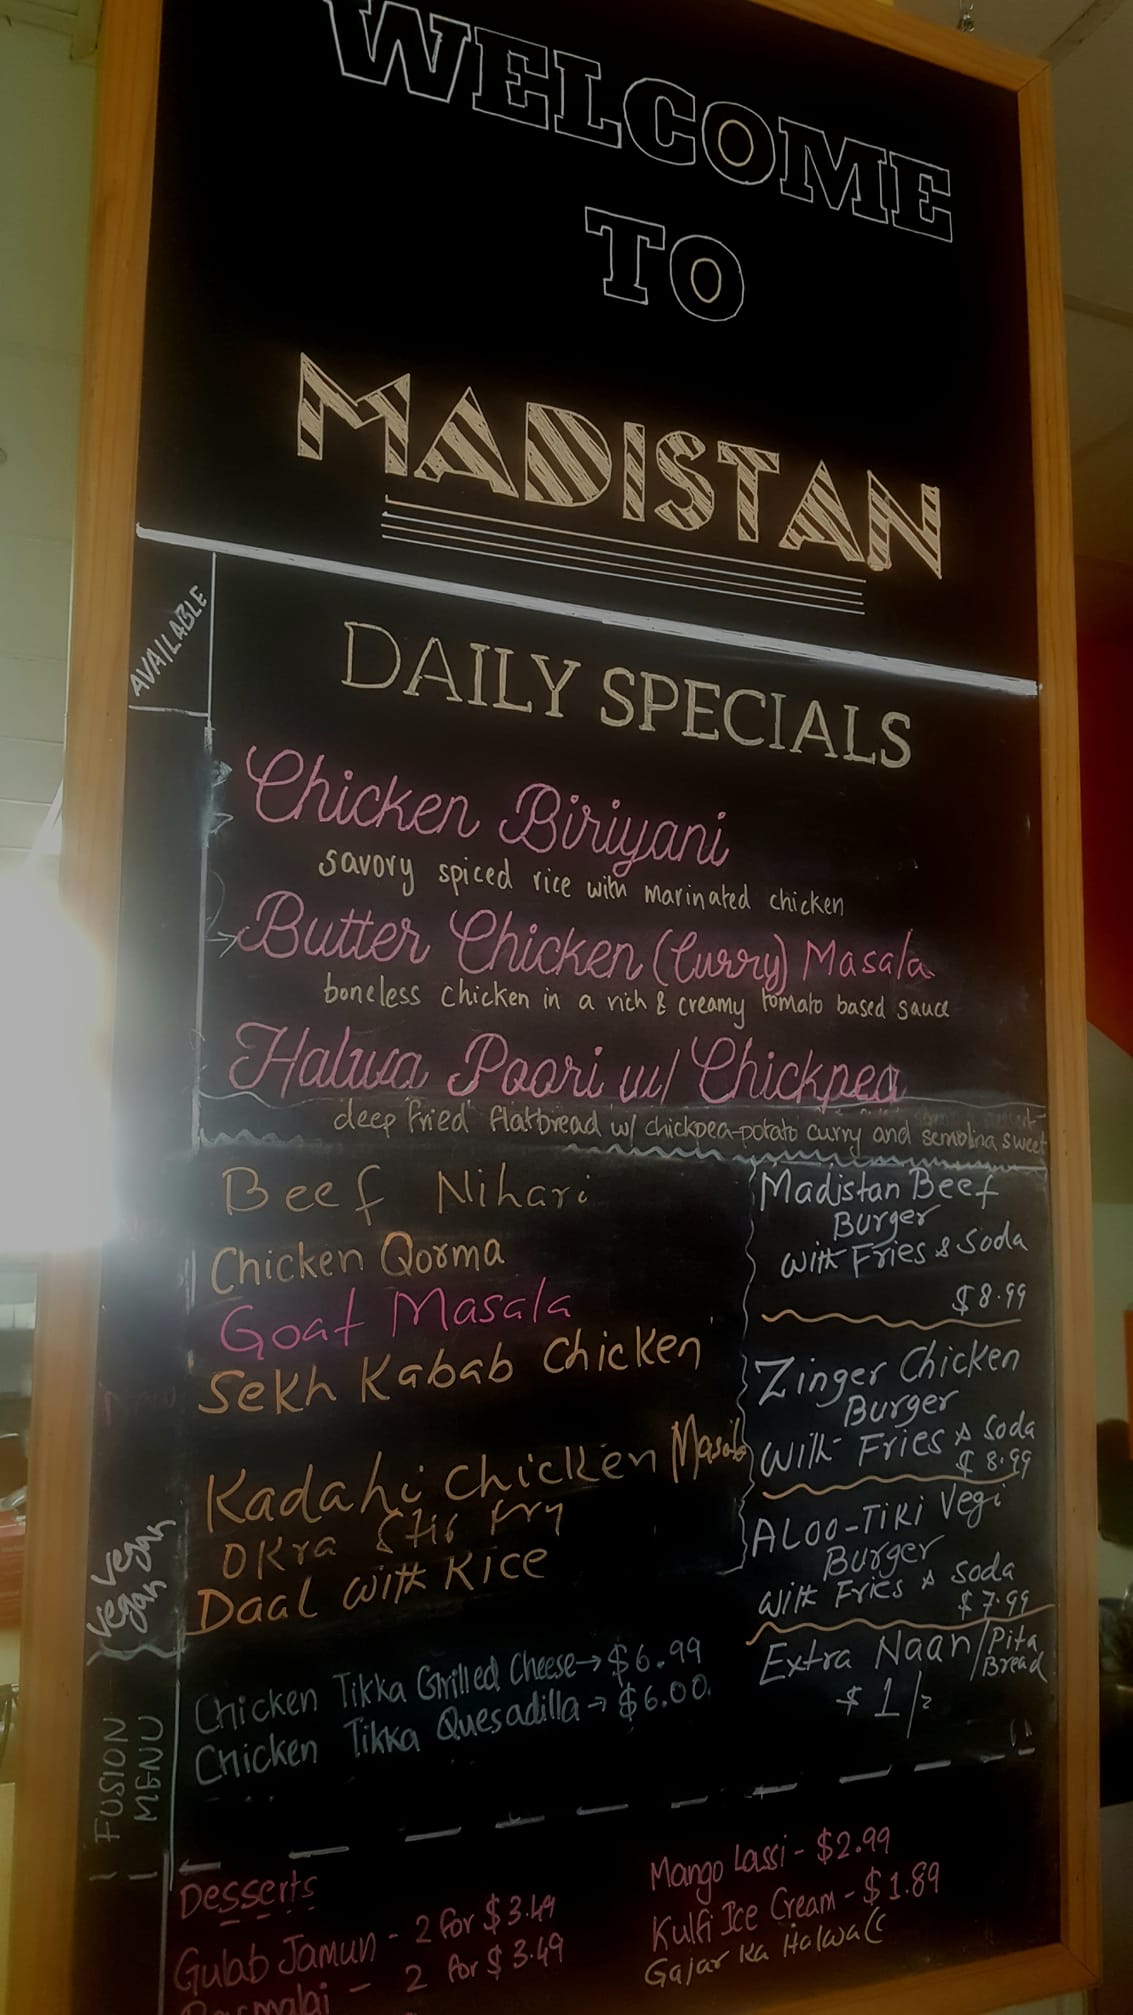 WELCOME
TO
MADISTAN
AVAILABLE
DAILY SPECIALS
Chicken Biriyani
savory spiced rice with marinated chicken
Butter Chicken (Curry) Masala
boneless chicken in a rich & creamy tomato based sauce
Halwa Poori w/ Chickpea
deep fried flatbread w/ chickpea-potato curry and semolina sweet
Beef Nihari
Chicken Qorma
Goat Masala
Sekh Kabab Chicken
Kadahi Chicken Masala
Okra Stir Fry
Daal with Rice
Vegan
Vegan
Madistan Beef
Burger
with Fries & Soda
$8.99
Zinger Chicken
Burger
with Fries & Soda
$8.99
Aloo-Tiki Vegi
Burger
with Fries & Soda
$7.99
Extra Naan/Pita
Bread
$1/=
FUSION
MENU
Chicken Tikka Grilled Cheese→$6.99
Chicken Tikka Quesadilla→$6.00
Desserts
Gulab Jamun - 2 for $3.49
Rasmalai - 2 for $3.49
Mango Lassi - $2.99
Kulfi Ice Cream - $1.89
Gajar Ka Halwa